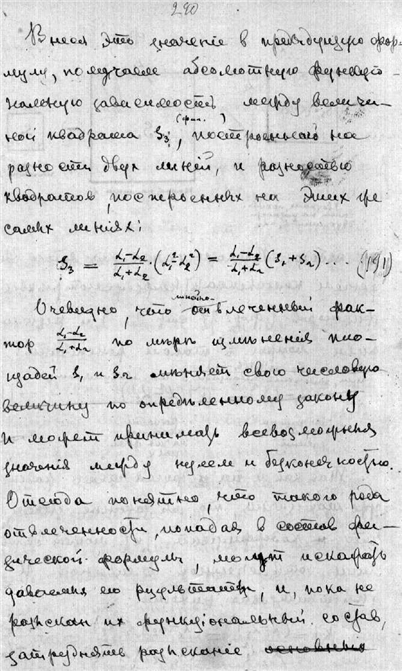 290
Внеся это значенiе в предъидущую фор-
мулу, получаем абсолютную функцiо-
нальную зависимость между величи-
ной квадрата S₃, построенного на
(фиг. )
разности двух линiй, и разностью
квадратов, построенных на этих же
самых линiях:
S₃ = (L₁-L₂)/(L₁+L₂) · (L₁²-L₂²) = (L₁-L₂)/(L₁+L₂) (S₁+S₂) ... (191)
Очевидно, что отвлеченный фак-
тор (L₁-L₂)/(L₁+L₂) по мѣрѣ измѣненiя пло-
щадей S₁ и S₂ мѣняет свою числовую
величину по опредѣленному закону
и может принимать всевозможныя
значенiя между нулем и безконечностью.
Отсюда понятно, что такого рода
отвлеченности, попадая в состав фи-
зической формулы, могут искажать
даваемые ею результаты, и, пока не
разъискан их функцiональный состав,
затруднять разъисканiе основных